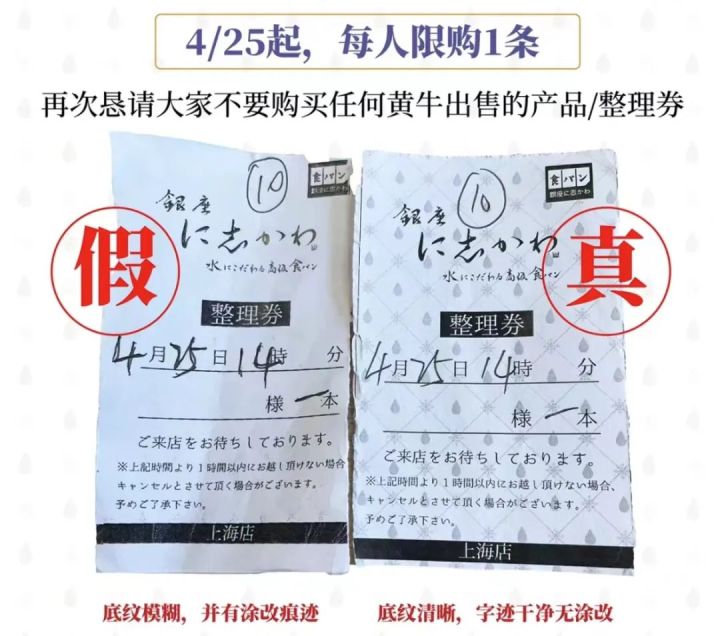 4/25起，每人限购1条
再次恳请大家不要购买任何黄牛出售的产品/整理券
假
10
食パン
銀座に志かわ
銀座
に志かわ
水にこだわる高級食パン
整理券
4月25日14時 分
様 一本
ご来店をお待ちしております。
※上記時間より1時間以内にお越し頂けない場合
キャンセルとさせて頂く場合がございます。
予めご了承下さい。
上海店
真
10
食パン
銀座に志かわ
銀座
に志かわ
水にこだわる高級食パン
整理券
4月25日14時 分
様 一本
ご来店をお待ちしております。
※上記時間より1時間以内にお越し頂けない場合、
キャンセルとさせて頂く場合がございます。
予めご了承下さい。
上海店
底纹模糊，并有涂改痕迹
底纹清晰，字迹干净无涂改